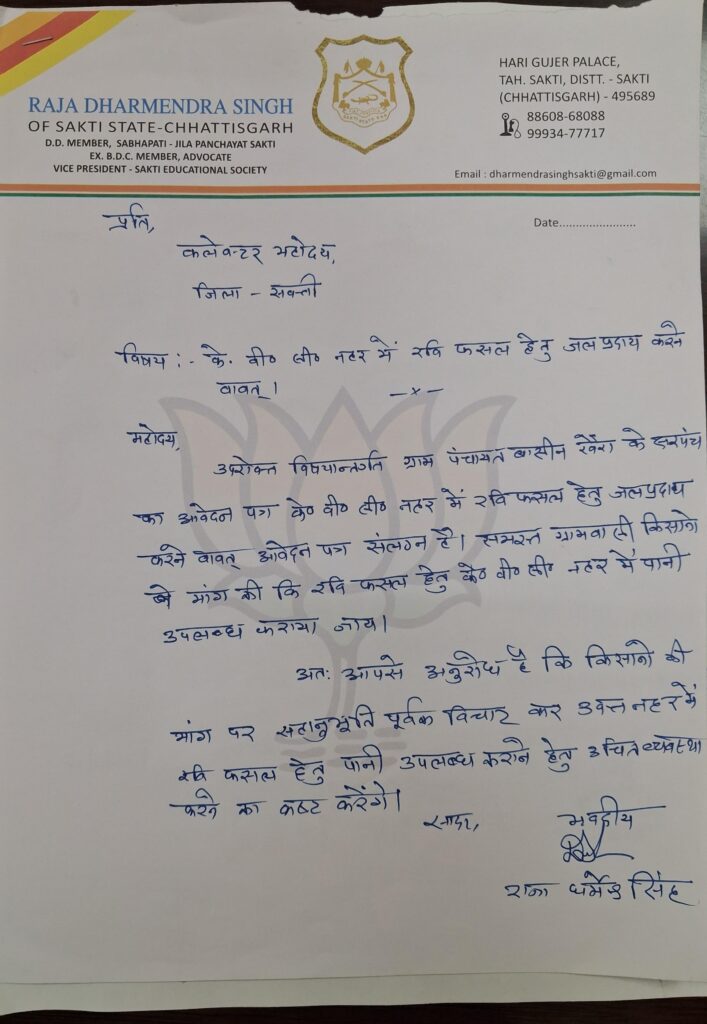 RAJA DHARMENDRA SINGH
OF SAKTI STATE-CHHATTISGARH
D.D. MEMBER, SABHAPATI - JILA PANCHAYAT SAKTI
EX. B.D.C. MEMBER, ADVOCATE
VICE PRESIDENT - SAKTI EDUCATIONAL SOCIETY
HARI GUJER PALACE,
TAH. SAKTI, DISTT. - SAKTI
(CHHATTISGARH) - 495689
88608-68088
99934-77717
Email : dharmendrasinghsakti@gmail.com
Date.......................
प्रति,
कलेक्टर महोदय,
जिला - सक्ती
विषय :- के. वी० सी० नहर में रवि फसल हेतु जल प्रदाय करने
वावत्।
-x-
महोदय,
उपरोक्त विषयान्तर्गत ग्राम पंचायत बासीन के सरपंच
का आवेदन पत्र के० वी० सी० नहर में रवि फसल हेतु जलप्रदाय
करने वावत् आवेदन पत्र संलग्न है। समस्त ग्रामवासी किसानो
ने मांग की कि रवि फसल हेतु के० वी० सी० नहर में पानी
उपलब्ध कराया जाय।
अतः आपसे अनुरोध है कि किसानो की
मांग पर सहानुभूति पूर्वक विचार कर उक्त नहर में
रवि फसल हेतु पानी उपलब्ध कराने हेतु उचित व्यवस्था
करने का कष्ट करेंगे।
सादर,
भवदीय
राजा धर्मेन्द्र सिंह